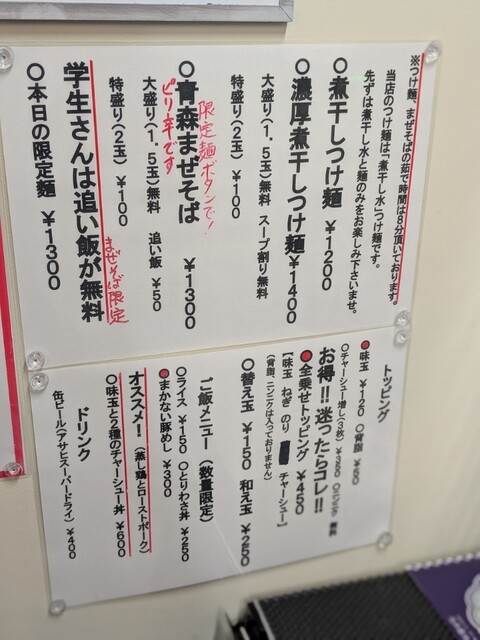 ※つけ麺、まぜそばの茹で時間は8分頂いております。
当店のつけ麺は「煮干し水」つけ麺です。
先ずは煮干し水と麺のみをお楽しみ下さいませ。
○煮干しつけ麺 ¥1200
○濃厚煮干しつけ麺¥1400
大盛り(1.5玉)無料 スープ割り無料
特盛り(2玉)¥100
限定麺ボタンで!
○青森まぜそば ¥1300
ピリ辛です
大盛り(1.5玉)無料 追い飯 ¥50
特盛り(2玉)¥100
まぜそば限定
学生さんは追い飯が無料
○本日の限定麺 ¥1300
トッピング
●味玉 ¥120 ○背脂 ¥50
○チャーシュー増し(3枚)¥350 ○ニンニク 無料
お得!!迷ったらコレ!!
●全乗せトッピング ¥450
【味玉 ねぎ のり チャーシュー】
(背脂、ニンニクは入っておりません)
○替え玉 ¥150 和え玉 ¥250
ご飯メニュー(数量限定)
○ライス ¥150 ○とりわさ丼 ¥250
●まかない豚めし ¥300
オススメ!(蒸し鶏とローストポーク)
○味玉と2種のチャーシュー丼 ¥600
ドリンク
缶ビール(アサヒスーパードライ)¥400